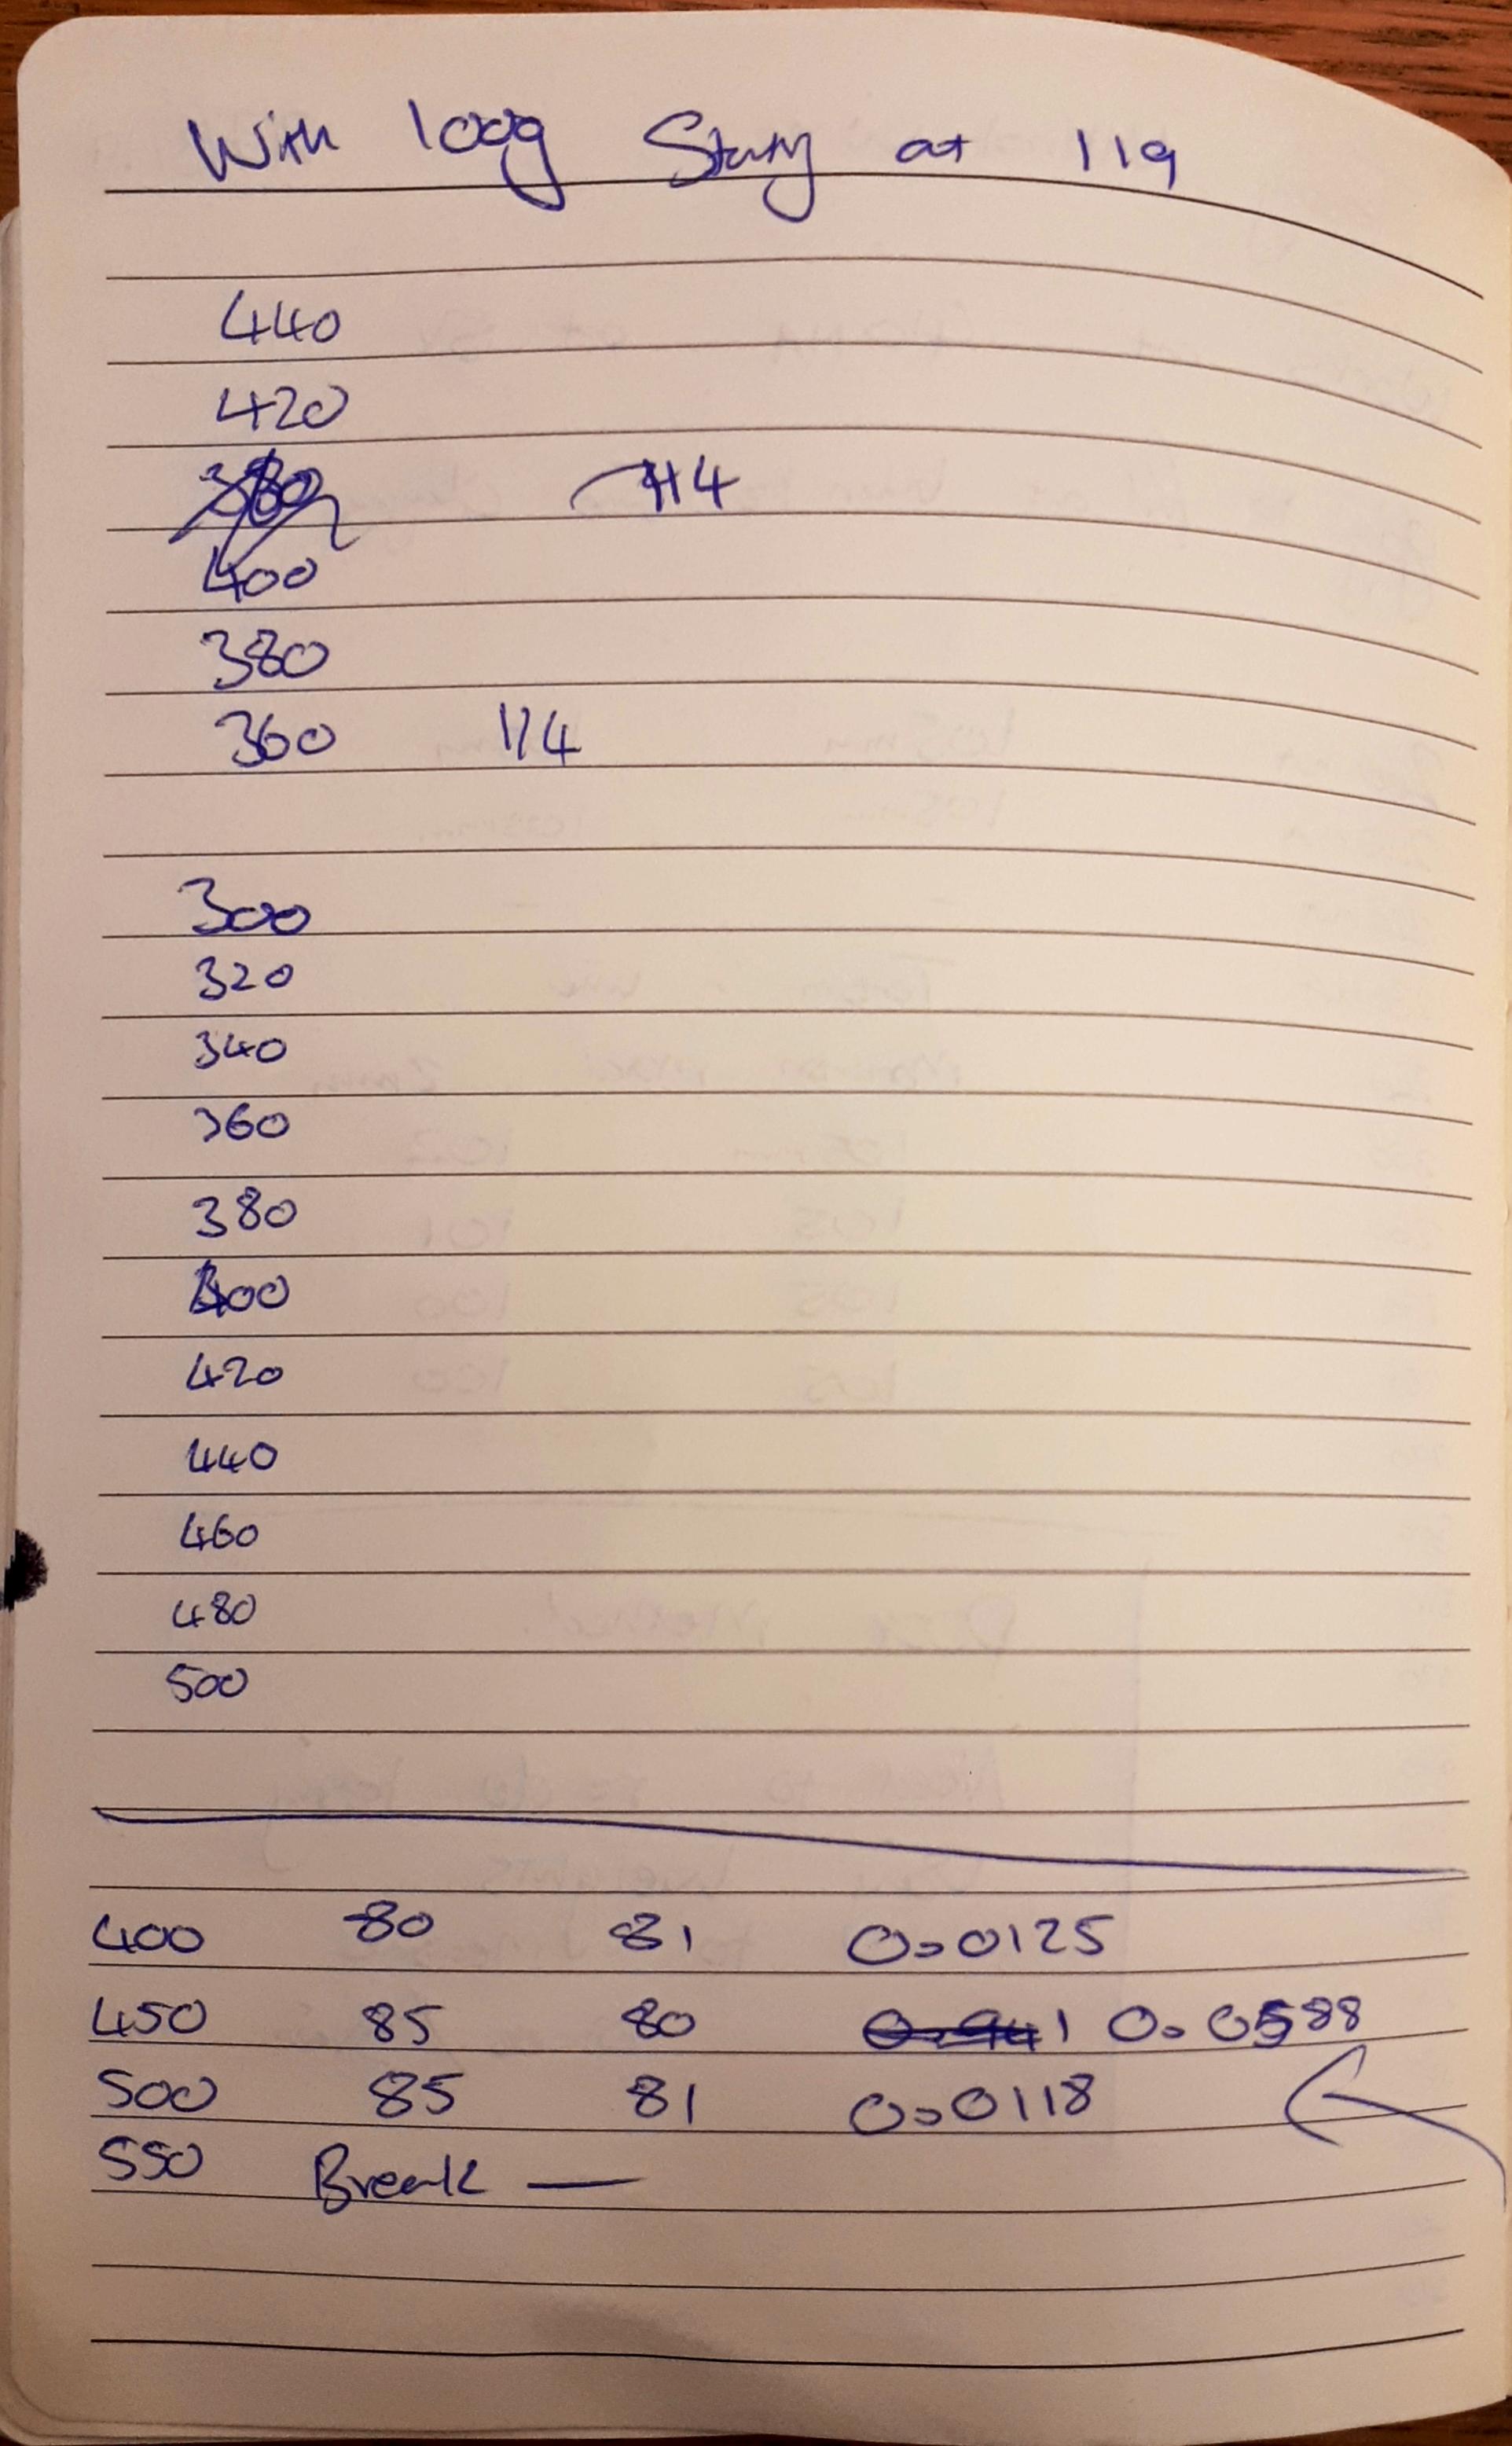 With 100g Starting at 119
440
420
380 114
400
380
360 114
300
320
340
360
380
400
420
440
460
480
500
400 80 81 0.0125
450 85 80 0.941 0.0588
500 85 81 0.0118
550 Break —